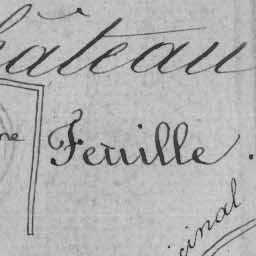 hâteau
ne
Feuille.
cinal